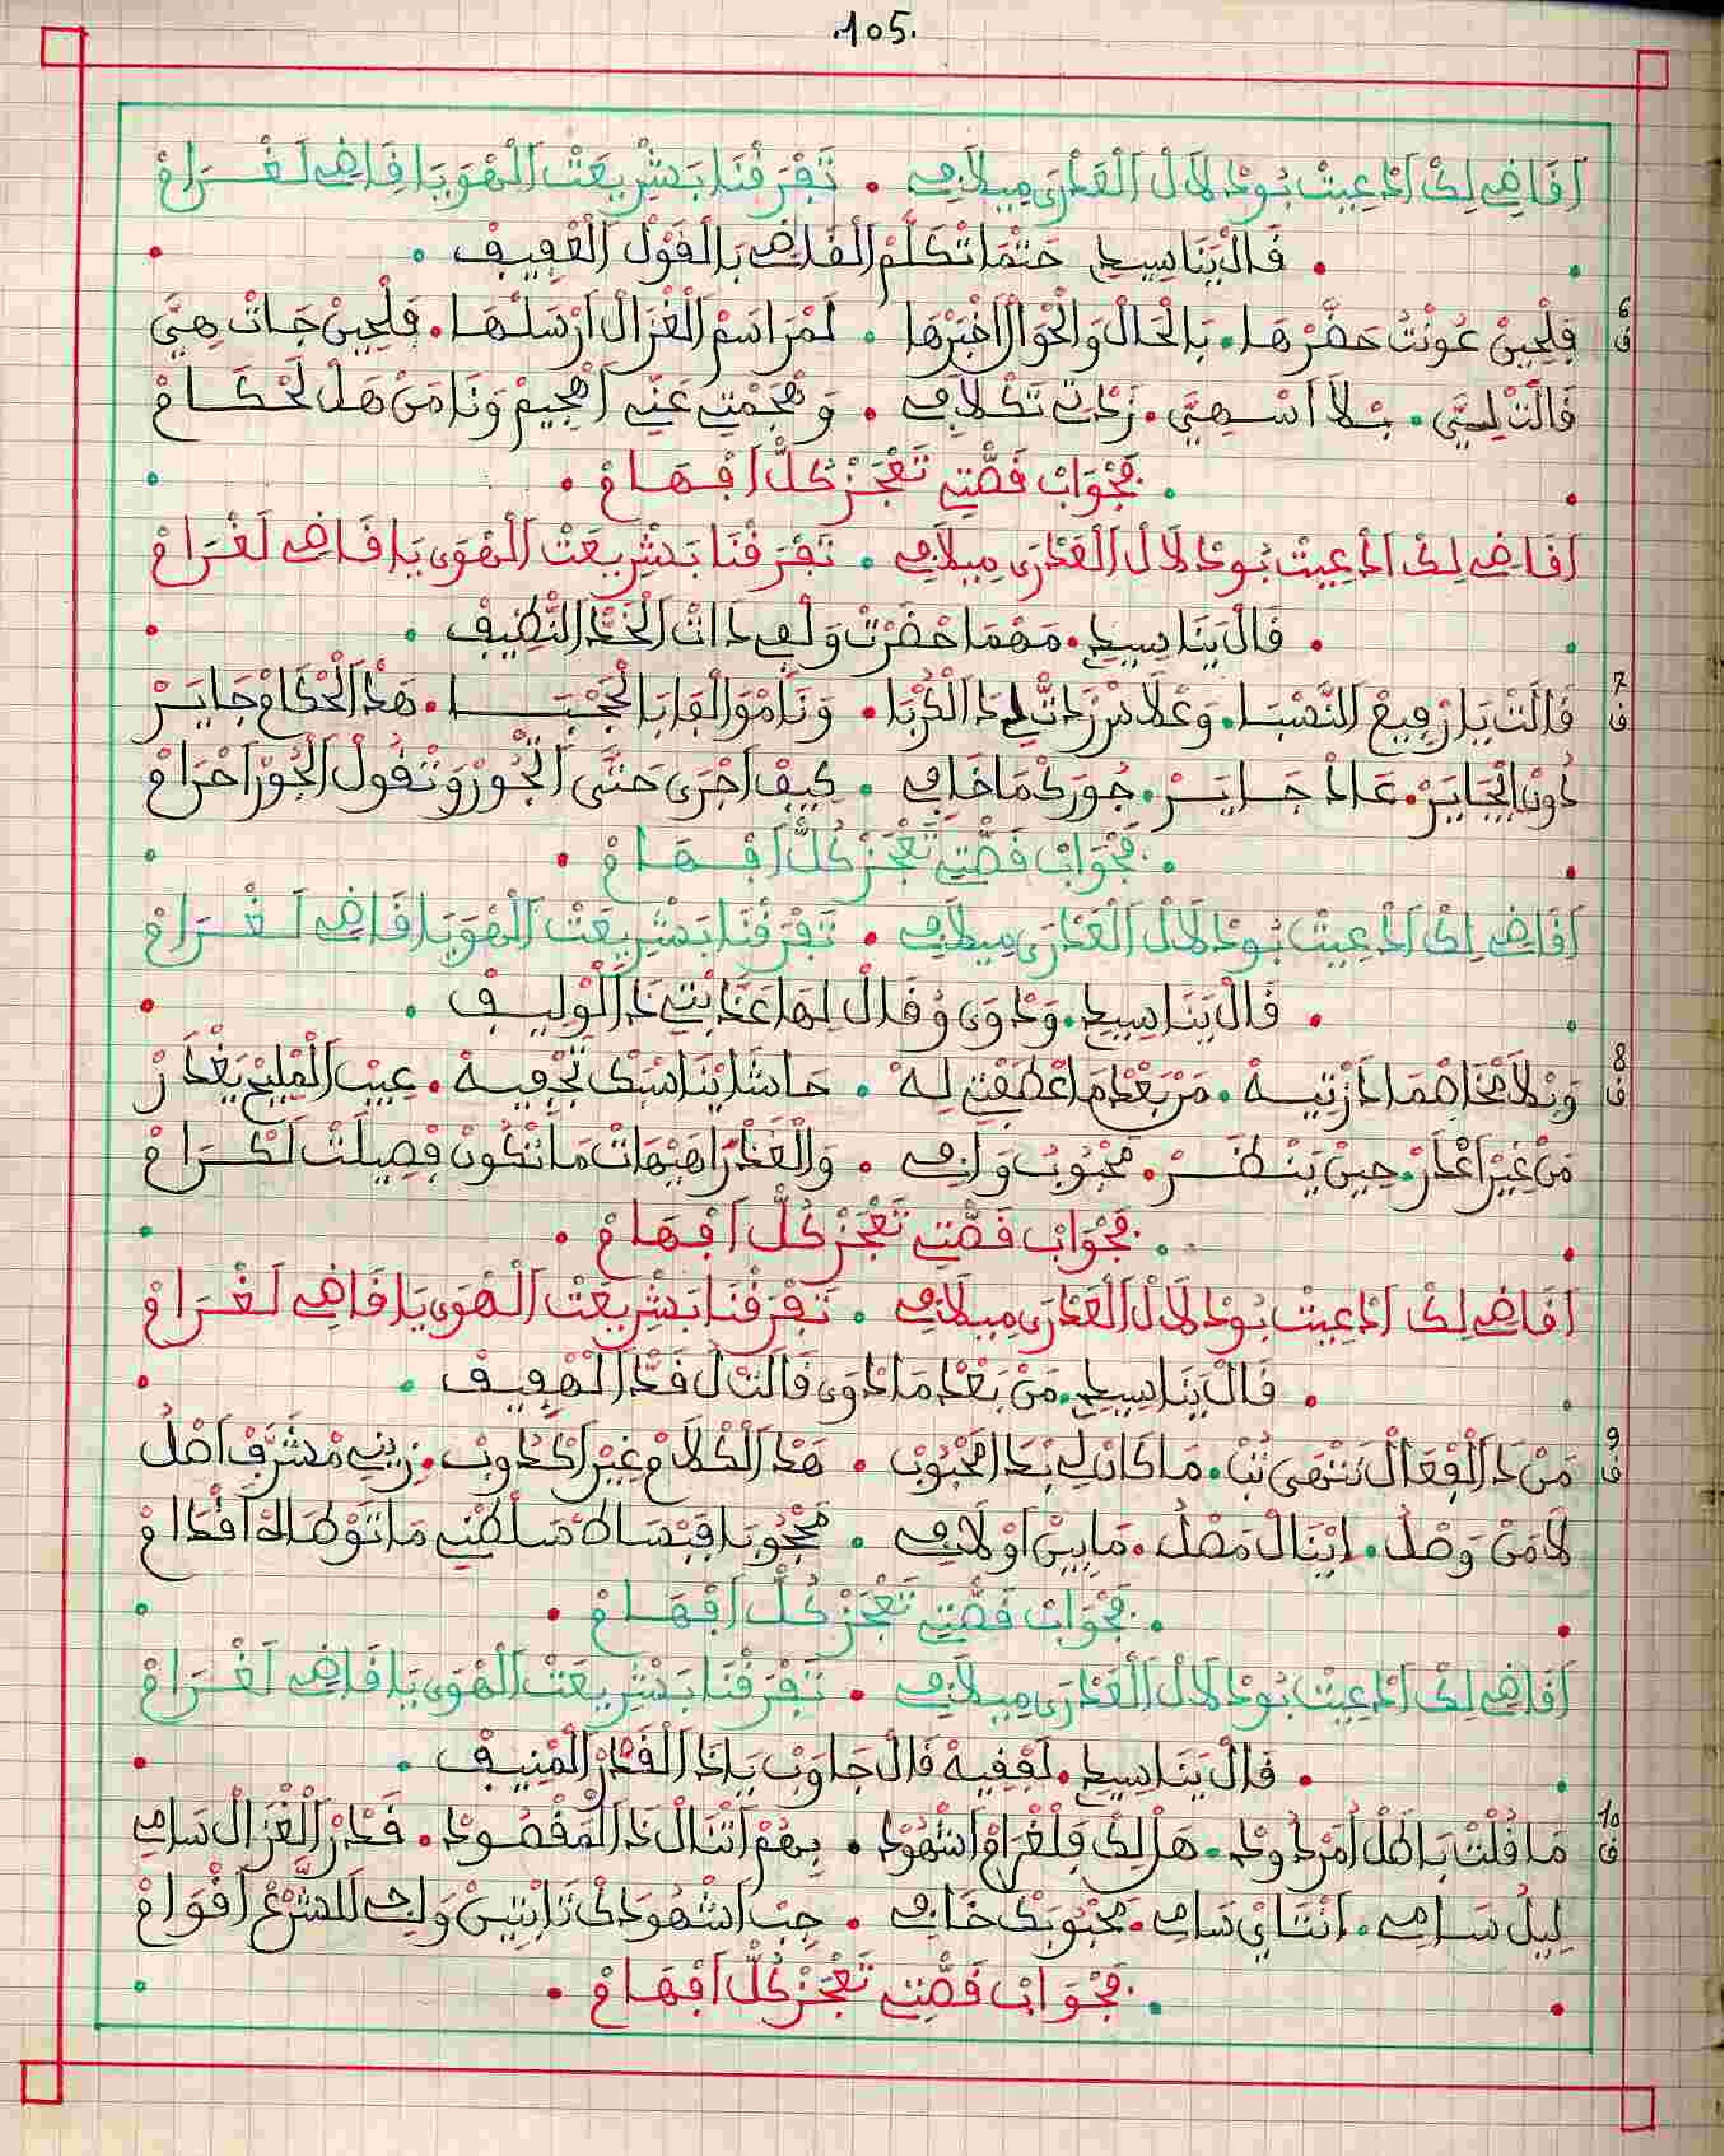 .105.
أَفَاضِي لِكْ اَدْعِيتْ بُودْلَالْ الْعَدْرَى مِيلَافِي • تَفْرَفْنَا بَشْرِيعَتْ الْهْوَى يَا فَاضِي لَغْـرَامْ
• فَالْ يَنَا سِيدِي حَتْمَا تْكَلَّمْ الْفَاضِي بَالْفَوْلْ الْعْفِيفْ •
6
ف
فِلْحِينْ عُونْتُ حَضَّرْهَا • بَالْحَالْ وَالْحْوَالْ اخْبَرْهَا • لَمْرَاسَمْ الْغْزَالْ ارْسَلْهَا • فِلْحِينْ جَاتْ هِيَّ
فَالَتْ لِيَّ • بْلَا اسْهِيَّ • زَدْتِ تَكْلَافِي • وَهْجَمْتِ عَنِّي اهْجِيمْ وَنَا مَنْ هَلْ لَحْكَـامْ
• فَجْوَابْ فَصْتِي تَعْجَزْ كُلْ اَفْهَـامْ •
أَفَاضِي لِكْ اَدْعِيتْ بُودْلَالْ الْعَدْرَى مِيلَافِي • تَفْرَفْنَا بَشْرِيعَتْ الْهْوَى يَا فَاضِي لَغْرَامْ
• فَالْ يَنَا سِيدِي • مَهْمَا حَضْرَتْ وَلْفِي دَاتْ الْخَدْ النْظِيفْ •
7
ف
فَالَتْ يَا رْفِيعْ النَّسْبَا • وَعْلَاسْ زَدْتْ لِي دَ الْكُرْبَا • وَنَا مْوَالْفَا بَالْحُجْبَـا • هَدْ الْحْكَامْ جَايَـرْ
دُونْ الْجَايَرْ • عَادْ جَـايَـرْ • جُورَكْ مَا خَافِي • كِيفْ اجْرَى حَتَّى الْجُورْ وَتْفُولْ الْجُورْ احْرَامْ
• فَجْوَابْ فَصْتِي تَعْجَزْ كُلْ اَفْـهَـامْ •
أَفَاضِي لِكْ اَدْعِيتْ بُودْلَالْ الْعَدْرَى مِيلَافِي • تَفْرَفْنَا بَشْرِيعَتْ الْهْوَى يَا فَاضِي لَغْـرَامْ
• فَالْ يَنَا سِيدِي • وَدْوَى وُفَالْ لِهَا عَدَّابْتِي دَ الْوْلِيـفْ •
8
ف
وَنْلَا مْخَاصْمَا دَزْتِيـهْ • مَنْ بَعْدْ مَا عْطَفْتِي لِهْ • حَاشَا يْنَاسْبَكْ تَجْفِيـهْ • عِيبْ الْمْلِيحْ يَغْدَرْ
مَنْ غِيرْ اعْدَرْ • حِينْ يَنْظَـرْ • مَحْبُوبُ وَافِي • وَالْغَدْرْ هَيْهَاتْ مَا تْكُونْ فْصِيلَتْ لَكْـرَامْ
• فَجْوَابْ فَصْتِي تَعْجَزْ كُلْ اَفْهَـامْ •
أَفَاضِي لِكْ اَدْعِيتْ بُودْلَالْ الْعَدْرَى مِيلَافِي • تَفْرَفْنَا بَشْرِيعَتْ الْهْوَى يَا فَاضِي لَغْـرَامْ
• فَالْ يَنَا سِيدِي • مَنْ بَعْدْ مَا دْوَى فَالَتْ لُ فَدْ الْهْفِيفْ •
9
ف
مَنْ دَ الْفْعَالْ نَنْهَى نْتُبْ • مَا كَانْ لِي بْدَ الْمَحْبُوبْ • هَدْ الْكْلَامْ غِيرْ اكْدُوبْ • زِينِي مْشَرَّفْ اصْلُ
لَا مَنْ وَصْلُ • ايْنَالْ مَصْلُ • مَابِينْ اوْلَافِي • مَحْجُوبَا فِبْسَاطْ سَلْطْنِي مَا تَوْطَاهْ افْدَامْ
• فَجْوَابْ فَصْتِي تَعْجَزْ كُلْ اَفْهَـامْ •
أَفَاضِي لِكْ اَدْعِيتْ بُودْلَالْ الْعَدْرَى مِيلَافِي • تَفْرَفْنَا بَشْرِيعَتْ الْهْوَى يَا فَاضِي لَغْـرَامْ
• فَالْ يَنَا سِيدِي • لَفْفِيهْ فَالْ جَاوَبْ يَا دَ الْفَدْرْ الْمْنِيـفْ •
10
ف
مَا فُلْتْ بَاطَلْ اُمَرْدُودْ • هَلْ لِكْ فِلْغْرَامْ اشْهُودْ • بِهُمْ اتْنَالْ دَ الْمَفْصُودْ • فَدْرْ الْغْزَالْ سَامِي
لِيلُ سَـامِي • انْتَايْ سَامِي • مَحْبُوبَكْ خَافِي • جِبْ اشْهُودَكْ تَابْتِينْ وَلِي لَلشْرَعْ افْوَامْ
• فَجْوَابْ فَصْتِي تَعْجَزْ كُلْ اَفْهَـامْ •